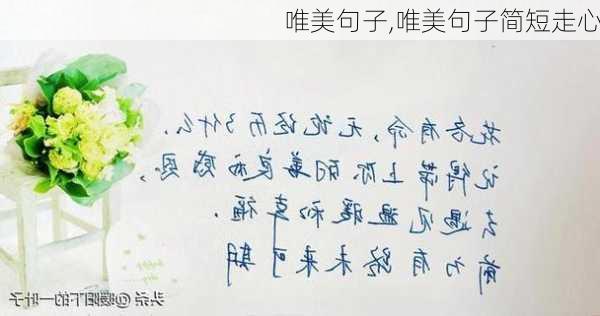 唯美句子,唯美句子简短走心
花各有命,无论经历了什么.
记得带上你的善良和感恩,
去遇见温暖和幸福.
前方有路未来可期
头条@暖阳下的一叶子